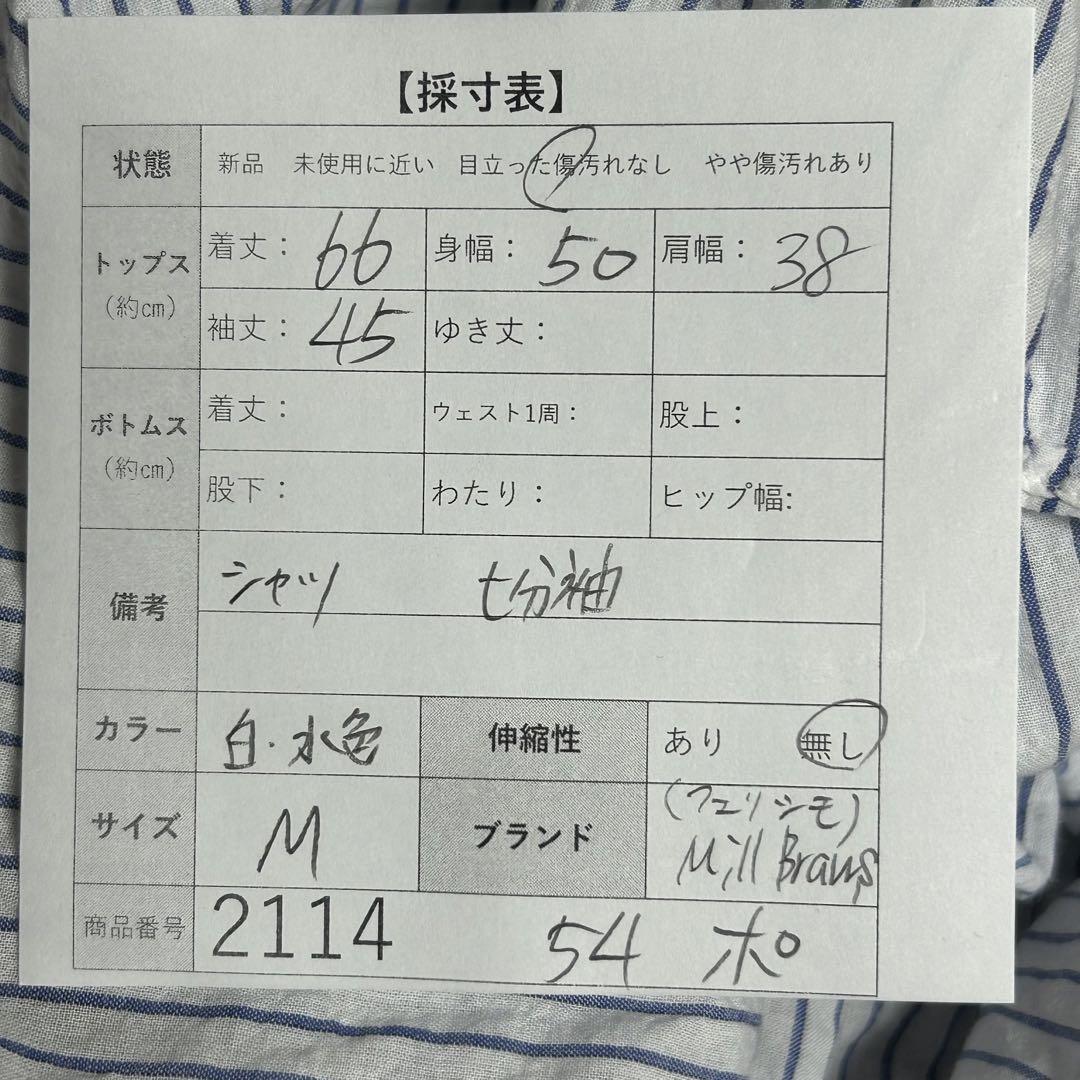 【採寸表】
状態 新品 未使用に近い 目立った傷汚れなし やや傷汚れあり
トップス (約cm)
着丈： 66 身幅： 50 肩幅： 38
袖丈： 45 ゆき丈：
ボトムス (約cm)
着丈： ウェスト1周： 股上：
股下： わたり： ヒップ幅:
備考 シャツ 七分袖
カラー 白・水色 伸縮性 あり 無し
サイズ M ブランド (フェリシモ)
Mill Brams
商品番号 2114 54 ポ